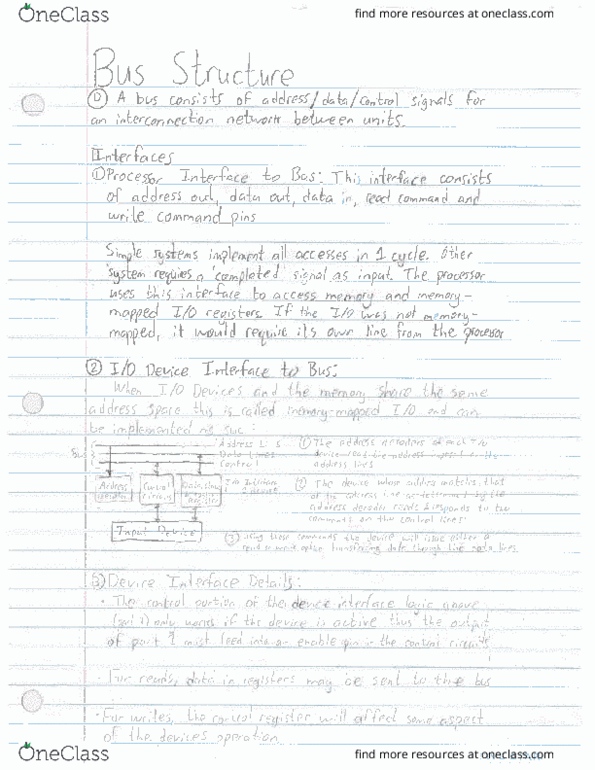 OneClass
find more resources at oneclass.com
Bus Structure
D A bus consists of address/data/control signals for
an interconnection network between units.
Interfaces
1 Processor Interface to Bus: This interface consists
of address out, data out, data in, read command and
write command pins
Simple systems implement all accesses in 1 cycle. Other
system requires a 'completed' signal as input. The processor
uses this interface to access memory and memory-
mapped I/O registers. If the I/O was not memory-
mapped, it would require its own line from the processor
2 I/O Device Interface to Bus:
When I/O Devices and the memory share the same
address space this is called memory-mapped I/O and can
be implemented as suc :
Bus
Address
Data Lines
Control
Address
Control
circuits
Data,
I/O
Input Device
1 The address
address lines
2 The device whose address matches that
of the address line as determined by the
address decoder reads & responds to the
commands on the control lines
3 Using these commands the device will issue either a
read or write transferring data through the data lines
3 Device Interface Details:
• The control portion of the device interface logic above
only works if the device is active thus the output
of part 1 must feed into an enable pin in the control circuits
• For reads, data in registers may be sent to the bus
• For writes, the control register will affect some aspect
of the devices operation
OneClass
find more resources at oneclass.com